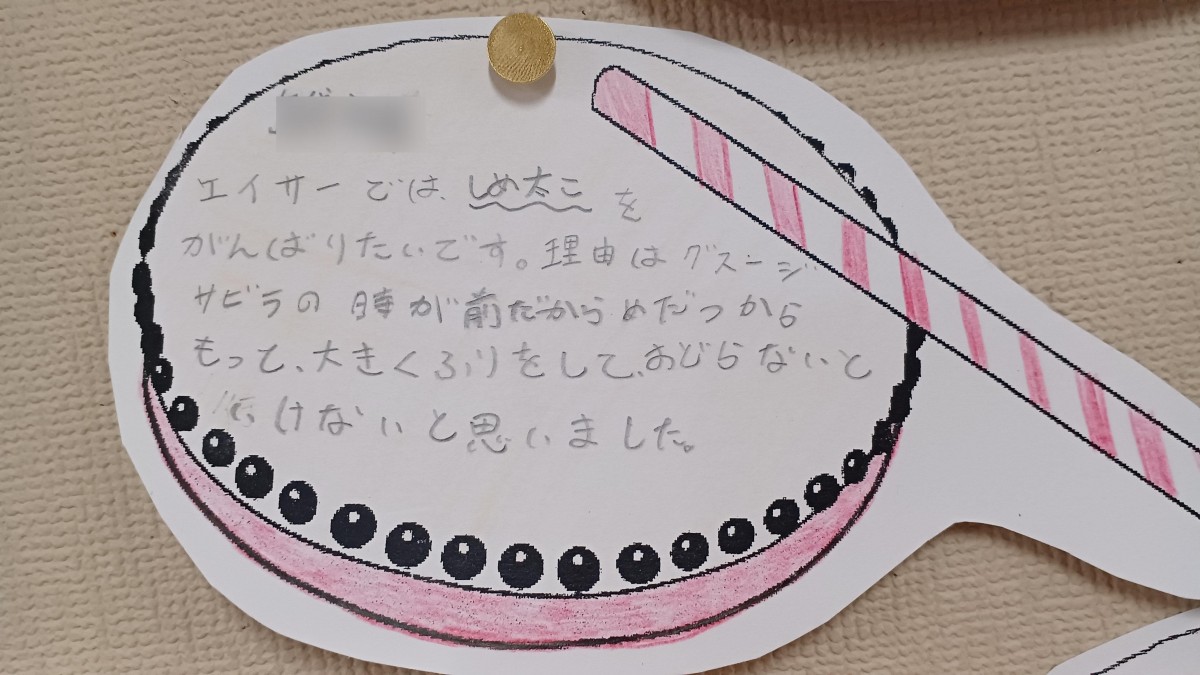 エイサーでは、しめ太こを
がんばりたいです。理由はグスージ
サビラの時が前だからめだつから
もって、大きくふりをして、おどらないと
いけないと思いました。